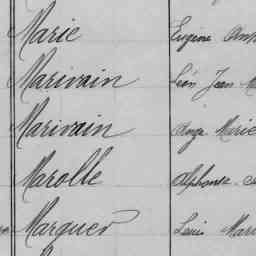 Marie Eugène
Marivain Léon Jean
Marivain Ange Marie
Marolle Alphonse
Marquer Louis Mari